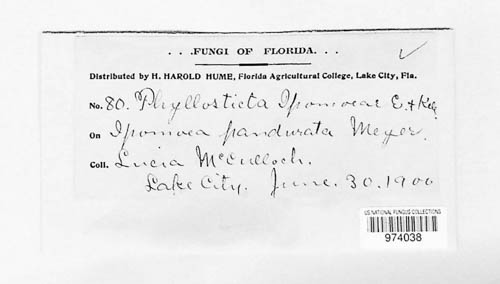 . . .FUNGI OF FLORIDA. . .
Distributed by H. HAROLD HUME, Florida Agricultural College, Lake City, Fla.
No. 80. Phyllosticta Ipomoeae E. & Kell
On Ipomoea pandurata Meyer.
Coll. Lucia McCulloch.
Lake City. June. 30. 1900
US NATIONAL FUNGUS COLLECTIONS
974038